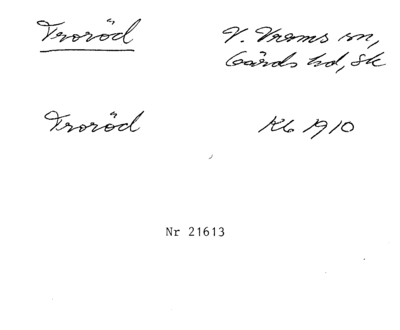 Troröd V. Vrams sn,
Gärds hd, Sk
Troröd Kb 1910
Nr 21613